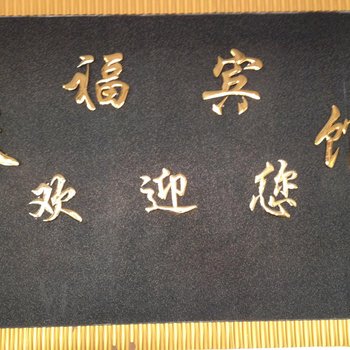 福宾馆
欢迎您